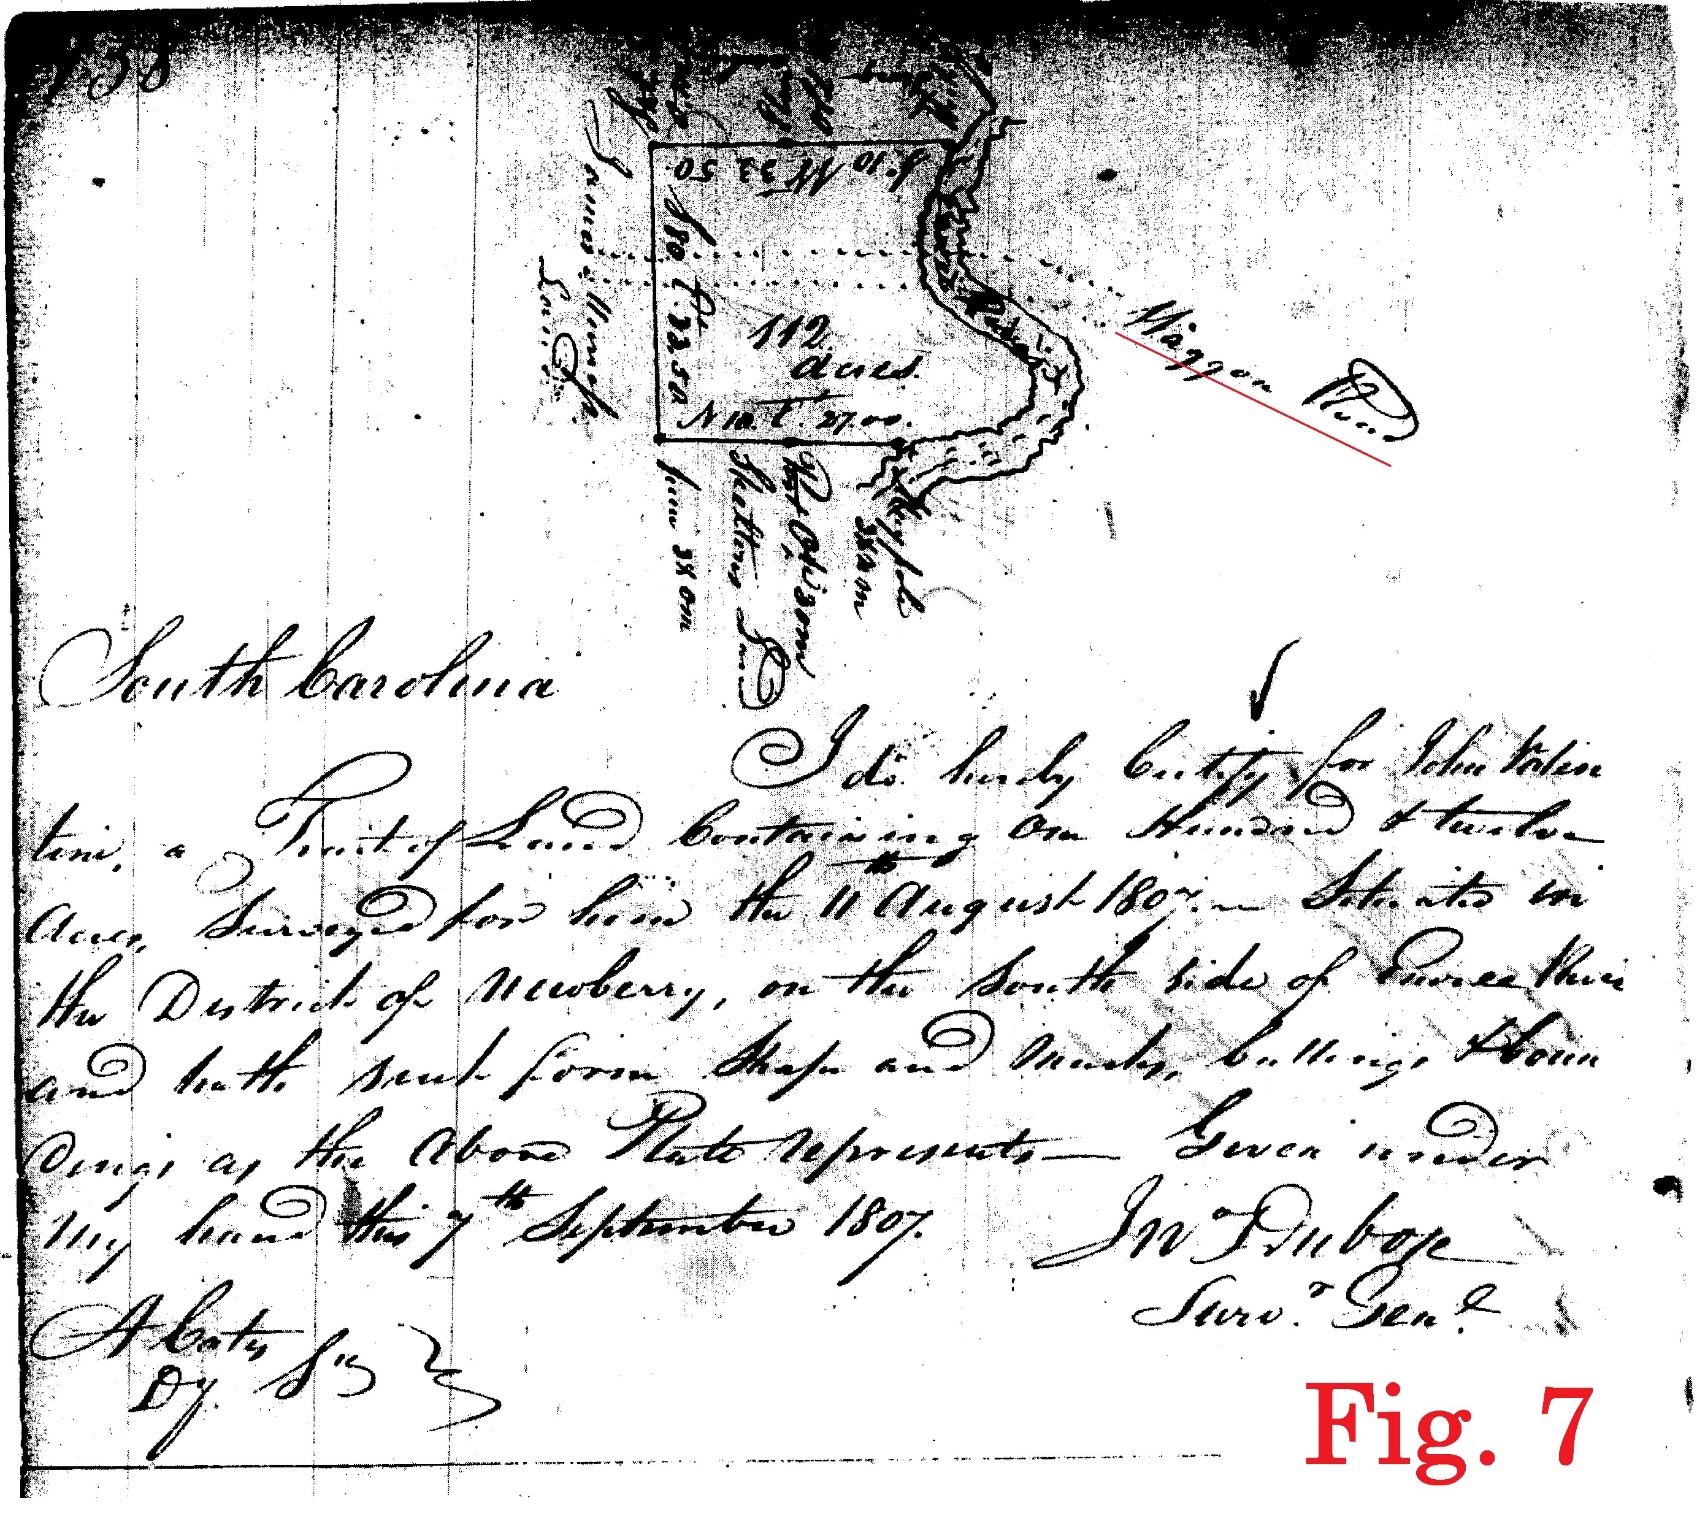 138
S. 10 W 33 50
S 80 E 32.50
112
acres.
N 10. E. 27.00.
James
Enoree River
Waggon Road
Sheltons Land
3X0m
South Carolina
I do hereby Certify for John Valen
tine, a Tract of Land Containing One Hundred & twelve
acres, Surveyed for him the 11th August 1807. Situate in
the District of Newberry, on the South side of Enoree River
and hath such form Shape and Marks, buttings & boun
dings as the Above Platt represents— Given under
My hand this 7th September 1807.
Jno Dubose
Survr. Genl.
A Cates
Dy. Sr
Fig. 7